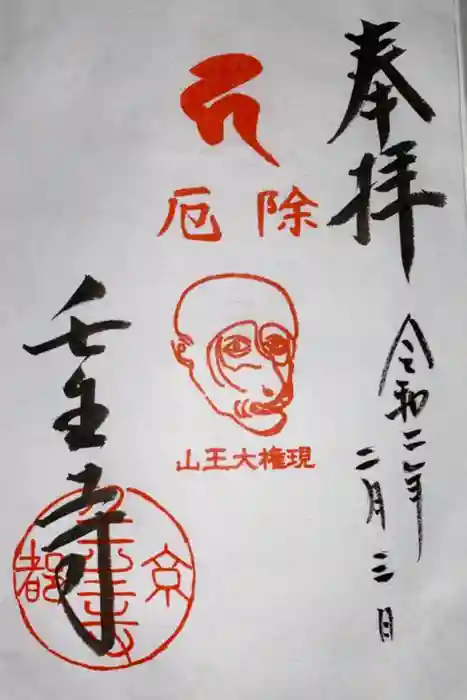 奉拝
令和二年
二月三日
除厄
現権大王山
壬生寺
京都
壬生寺